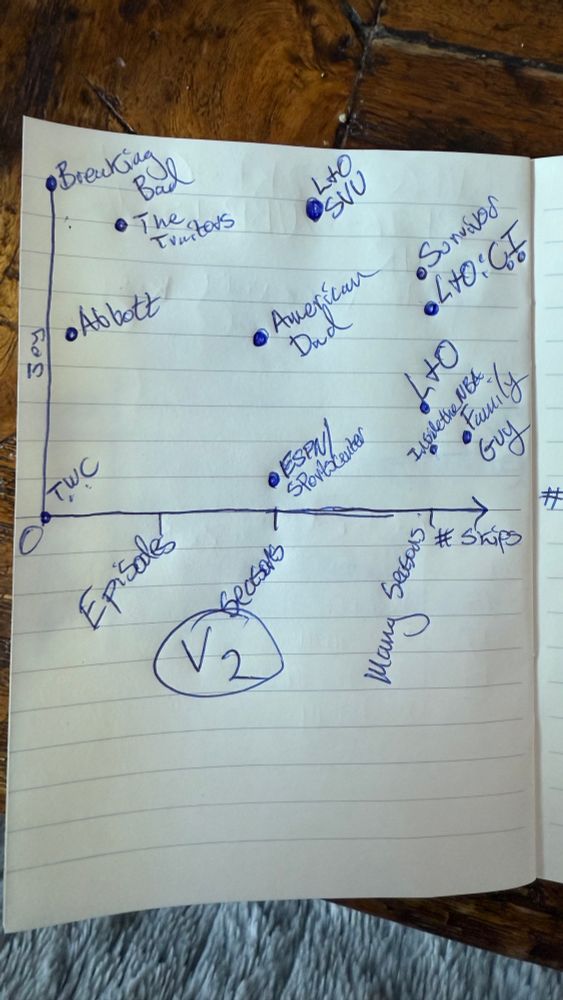 Breaking
Bad
The
Traitors
L+O
SVU
Survivor
L+O:CI
Abbott
American
Dad
Joy
L+O
Inside the NBA
Family
Guy
ESPN/
Sportscenter
TWC
O
# Skips
#
Episodes
Seasons
Many Seasons
V2